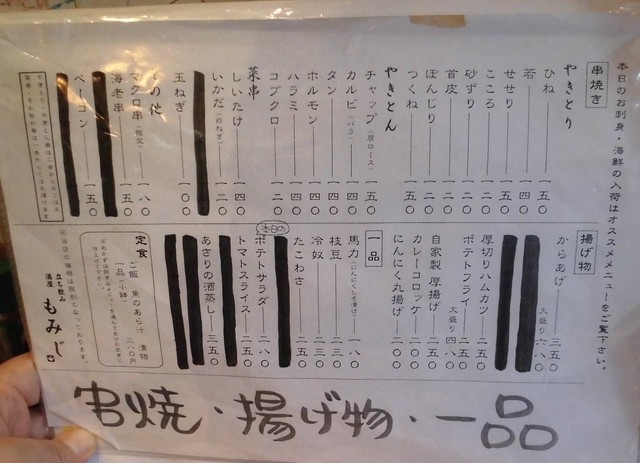 本日のお刺身・海鮮の入荷はオススメメニューをご覧下さい。
串焼き
やきとり
ひね 一五〇
若 一四〇
せせり 一五〇
こころ 一二〇
砂ずり 一二〇
首皮 一二〇
ぼんじり 一二〇
つくね 一五〇
やきとん
チャップ(肩ロース) 一五〇
カルビ(バラ) 一四〇
タン 一四〇
ホルモン 一四〇
ハラミ 一四〇
コブクロ 一二〇
菜串
しいたけ 一四〇
いかだ(白ねぎ) 一二〇
玉ねぎ 一〇〇
その他
マグロ串(限定) 一八〇
海老串 一五〇
ベーコン 一五〇
揚げ物
からあげ 三五〇
大盛り 六八〇
厚切りハムカツ 二五〇
ポテトフライ 二五〇
大盛り 四八〇
自家製 厚揚げ 二五〇
カレーコロッケ 二〇〇
にんにく丸揚げ 二〇〇
一品
馬力(にんにくしそ漬け) 一八〇
枝豆 二三〇
冷奴 二三〇
たこわさ 二五〇
本日の
ポテトサラダ 二八〇
トマトスライス 二五〇
あさりの酒蒸し 三五〇
定食
ご飯 魚のあら汁 漬物
一品(小鉢) 三八〇円
※当店の価格は税別となっております。
立ち飲み
酒屋 もみじ
串焼・揚げ物・一品